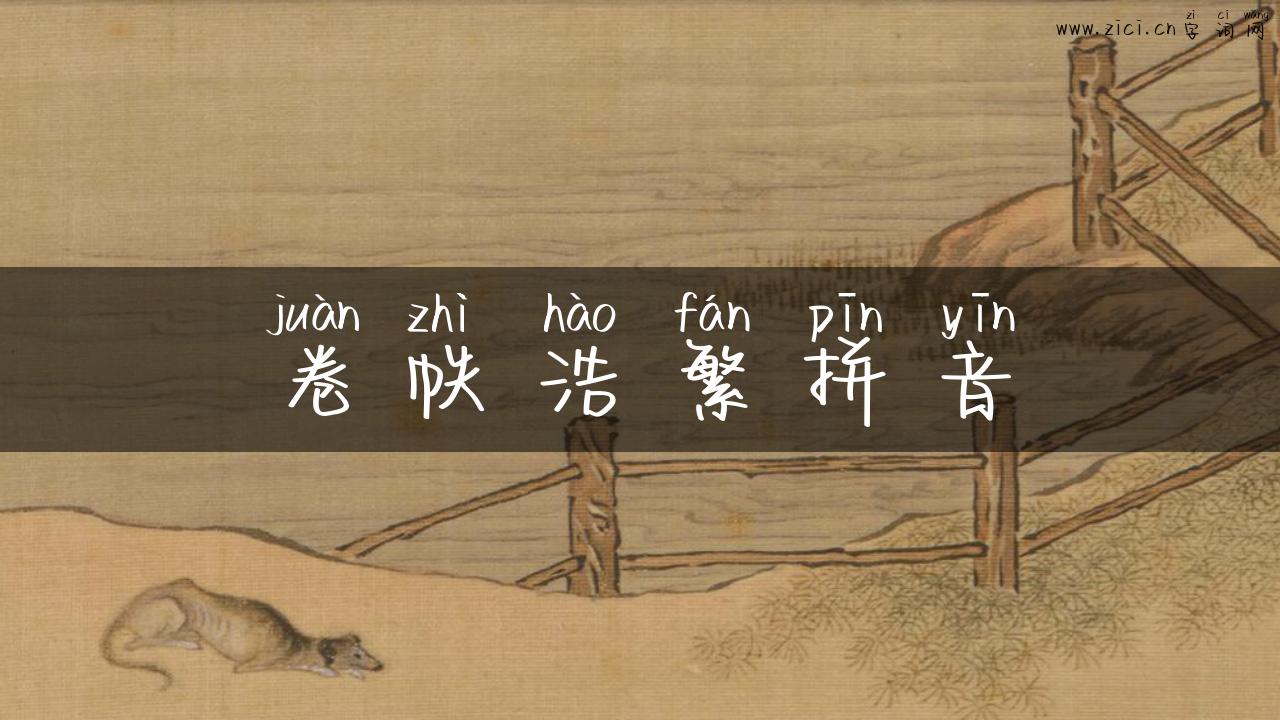 zì cí wǎng
www.zici.cn 字词网
juàn zhì hào fán pīn yīn
卷帙浩繁拼音